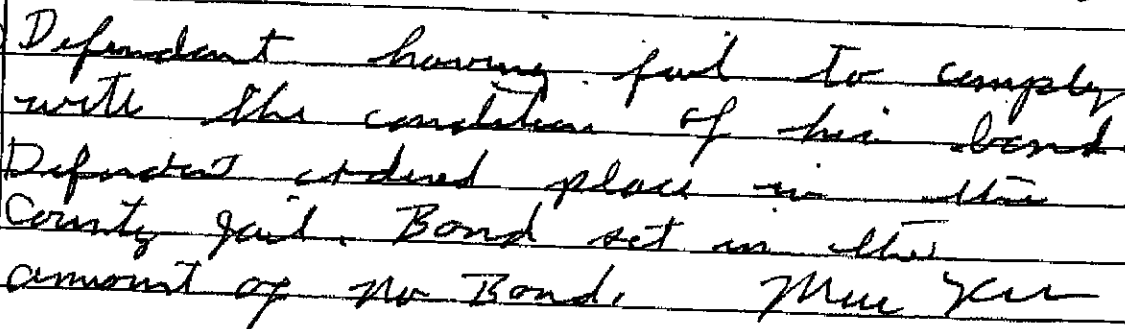 Defendant having fail to comply
with the condition of his bond.
Defendant ordered place in the
County Jail. Bond set in the
amount of No Bond.